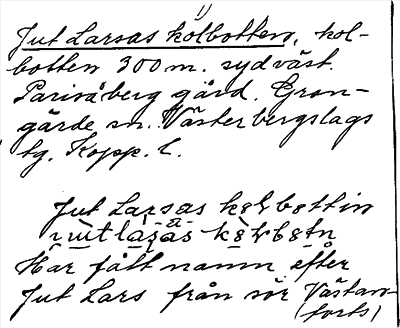 1)
Jut Larsas kolbotten, kol-
botten 300 m. sydväst.
Parisåberg gård. Gran-
gärde sn. Västerbergslags
tg. Kopp. l.
Jut Larsas
Har fått namn efter
Jut Lars från sör Västan-
(forts)